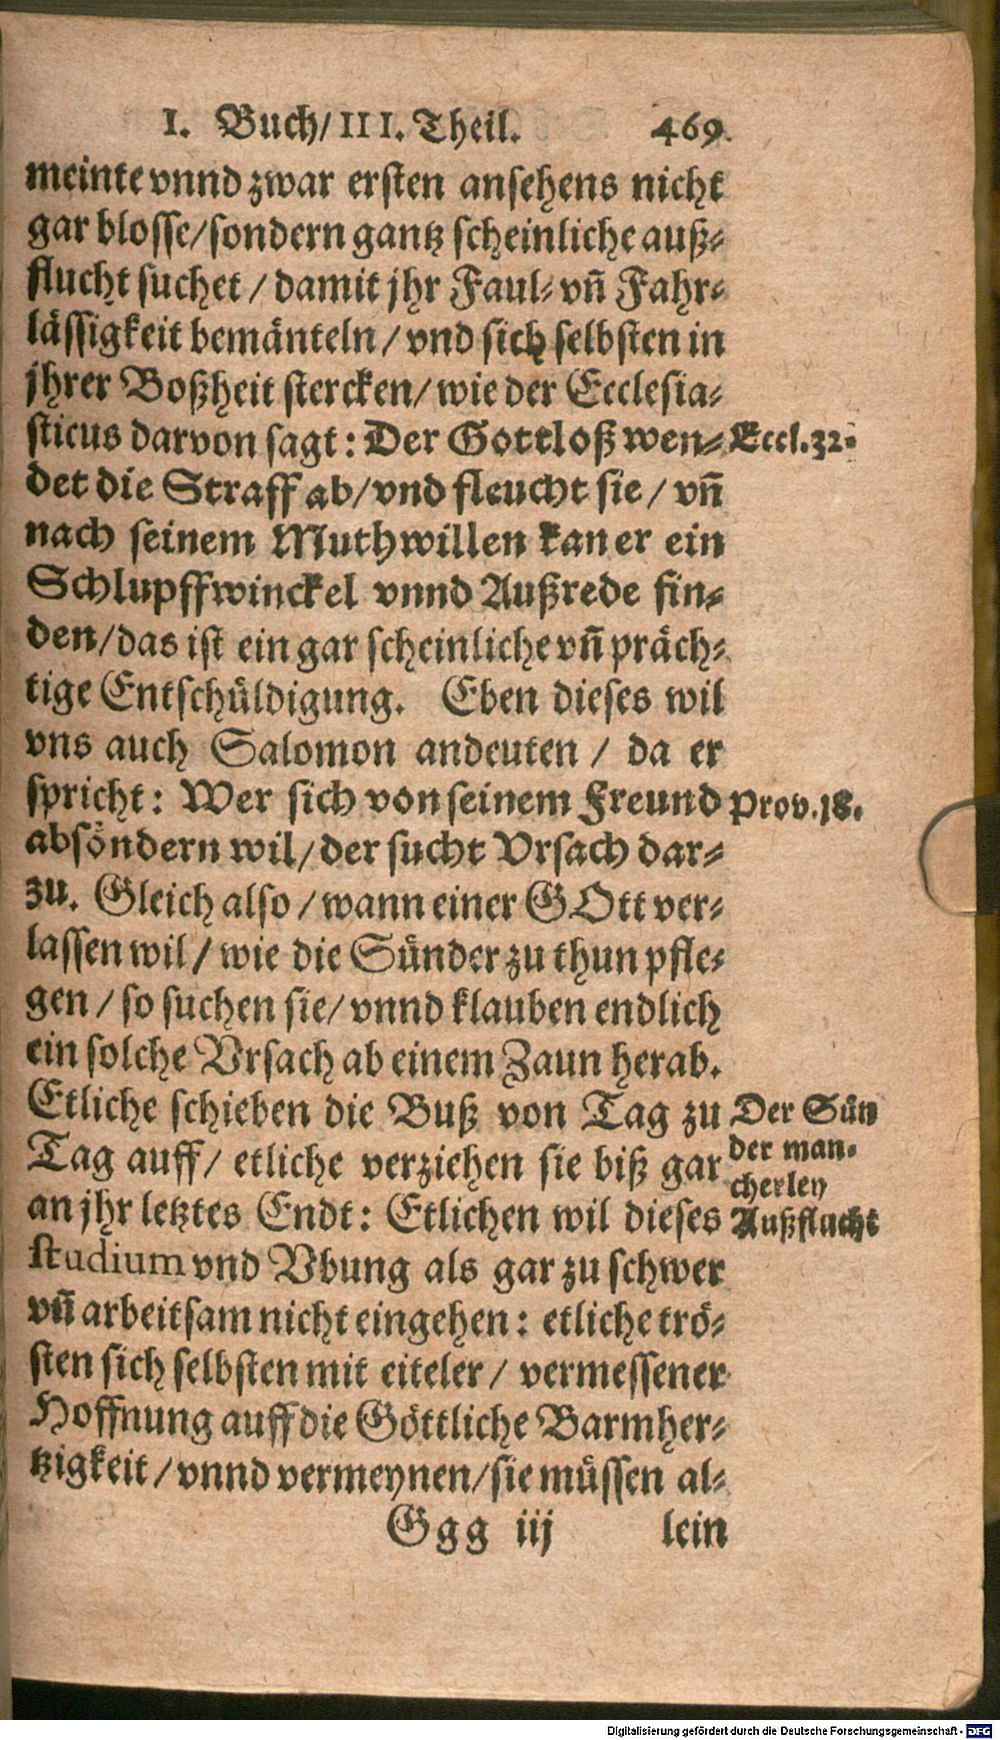 I. Buch/ III. Theil. 469.
meinte vnnd zwar ersten ansehens nicht
gar blosse/sondern gantz scheinliche auß-
flucht suchet / damit jhr Faul- vñ Fahr-
lässigkeit bemänteln / vnd sich selbsten in
jhrer Boßheit stercken/ wie der Ecclesia-
sticus darvon sagt: Der Gottloß wen-
Eccl. 32.
det die Straff ab/vnd fleucht sie / vñ
nach seinem Muthwillen kan er ein
Schlupffwinckel vnnd Außrede fin-
den/das ist ein gar scheinliche vñ präch-
tige Entschüldigung. Eben dieses wil
vns auch Salomon andeuten / da er
spricht: Wer sich von seinem Freund
Prov. 18.
absöndern wil/der sucht Vrsach dar-
zu. Gleich also / wann einer GOtt ver-
lassen wil / wie die Sünder zu thun pfle-
gen / so suchen sie/ vnnd klauben endlich
ein solche Vrsach ab einem Zaun herab.
Etliche schieben die Buß von Tag zu
Tag auff/ etliche verziehen sie biß gar
an jhr letztes Endt: Etlichen wil dieses
Der Sün
der man-
cherley
Außflucht
studium vnd Vbung als gar zu schwer
vñ arbeitsam nicht eingehen: etliche trö-
sten sich selbsten mit eiteler / vermessener
Hoffnung auff die Göttliche Barmher-
tzigkeit / vnnd vermeynen/sie müssen al-
Ggg iij lein
Digitalisierung gefördert durch die Deutsche Forschungsgemeinschaft - DFG